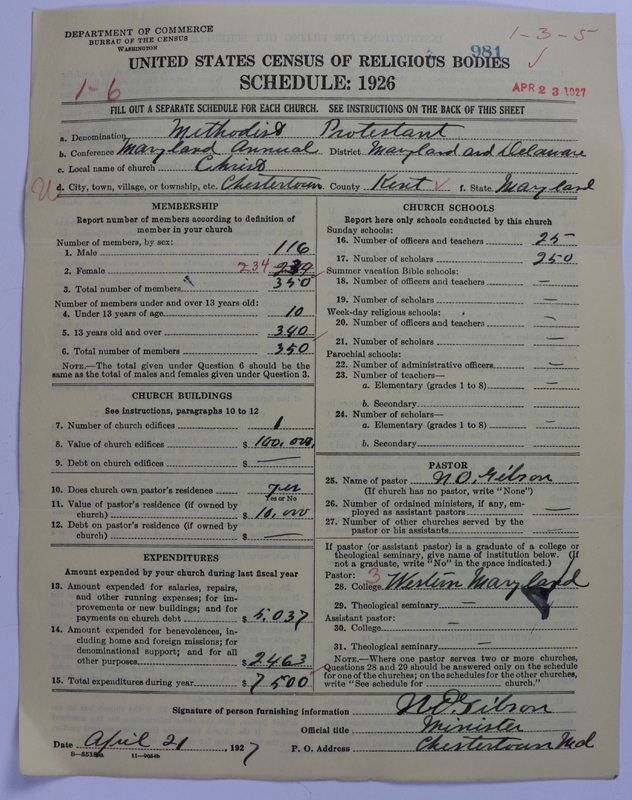 DEPARTMENT OF COMMERCE
BUREAU OF THE CENSUS
WASHINGTON
1-3-5
981
UNITED STATES CENSUS OF RELIGIOUS BODIES
SCHEDULE: 1926
1-6
APR 23 1927
FILL OUT A SEPARATE SCHEDULE FOR EACH CHURCH. SEE INSTRUCTIONS ON THE BACK OF THIS SHEET
a. Denomination Methodist Protestant
b. Conference Maryland Annual District Maryland and Delaware
c. Local name of church Christ
d. City, town, village, or township, etc. Chestertown County Kent f. State Maryland
MEMBERSHIP
Report number of members according to definition of
member in your church
Number of members, by sex:
1. Male 116
2. Female 234
3. Total number of members 350
Number of members under and over 13 years old:
4. Under 13 years of age 10
5. 13 years old and over 340
6. Total number of members 350
NOTE.—The total given under Question 6 should be the
same as the total of males and females given under Question 3.
CHURCH BUILDINGS
See instructions, paragraphs 10 to 12
7. Number of church edifices 1
8. Value of church edifices $ 100,000
9. Debt on church edifices $ —
10. Does church own pastor's residence yes
Yes or No
11. Value of pastor's residence (if owned by
church) $ 10,000
12. Debt on pastor's residence (if owned by
church) $ —
EXPENDITURES
Amount expended by your church during last fiscal year
13. Amount expended for salaries, repairs,
and other running expenses; for im-
provements or new buildings; and for
payments on church debt $ 5,037
14. Amount expended for benevolences, in-
cluding home and foreign missions; for
denominational support; and for all
other purposes $ 2463
15. Total expenditures during year $ 7500
CHURCH SCHOOLS
Report here only schools conducted by this church
Sunday schools:
16. Number of officers and teachers 25
17. Number of scholars 250
Summer vacation Bible schools:
18. Number of officers and teachers —
19. Number of scholars —
Week-day religious schools:
20. Number of officers and teachers —
21. Number of scholars —
Parochial schools:
22. Number of administrative officers —
23. Number of teachers—
a. Elementary (grades 1 to 8) —
b. Secondary
24. Number of scholars—
a. Elementary (grades 1 to 8) —
b. Secondary
PASTOR
25. Name of pastor N.O. Gibson
(If church has no pastor, write "None")
26. Number of ordained ministers, if any, em-
ployed as assistant pastors —
27. Number of other churches served by the
pastor or his assistants —
If pastor (or assistant pastor) is a graduate of a college or
theological seminary, give name of institution below. (If
not a graduate, write "No" in the space indicated.)
Pastor: 3
28. College Western Maryland
29. Theological seminary —
Assistant pastor:
30. College —
31. Theological seminary —
NOTE.—Where one pastor serves two or more churches,
Questions 28 and 29 should be answered only on the schedule
for one of the churches; on the schedules for the other churches,
write "See schedule for church."
Signature of person furnishing information N.O. Gibson
Official title Minister
Date April 21, 1927 P. O. Address Chestertown Md